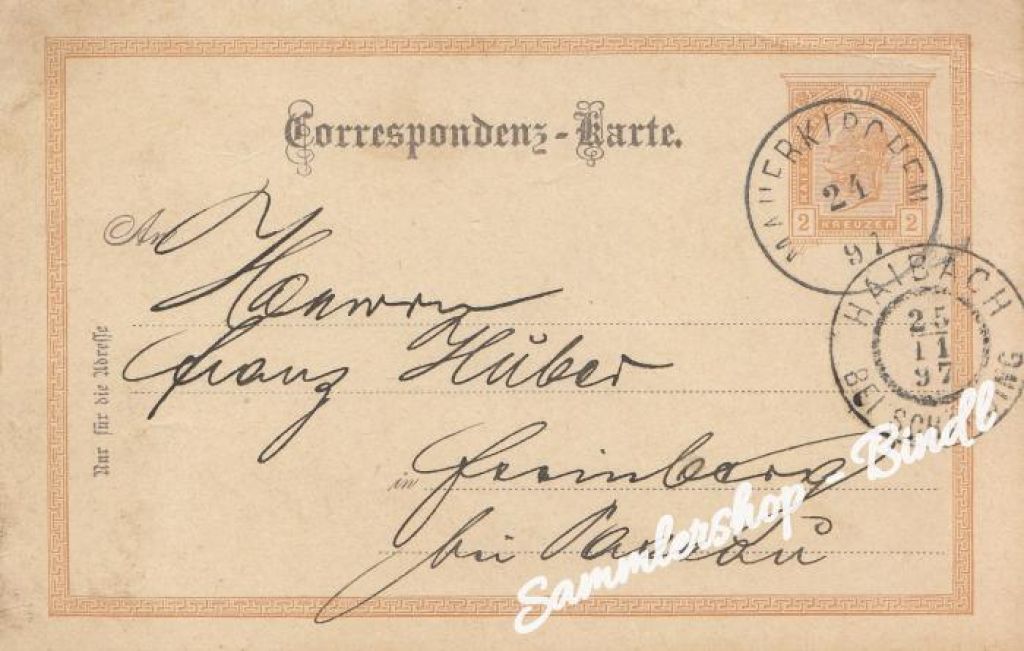 Correspondenz-Karte.
2
2 KREUZER 2
MAUERKIRCHEN
24
97
An
Herrn
Franz Huber
HAIBACH
25
11
97
BEI SCHÄRDING
Nur für die Adresse
in Freinberg
bei Passau
Sammlershop - Bindl